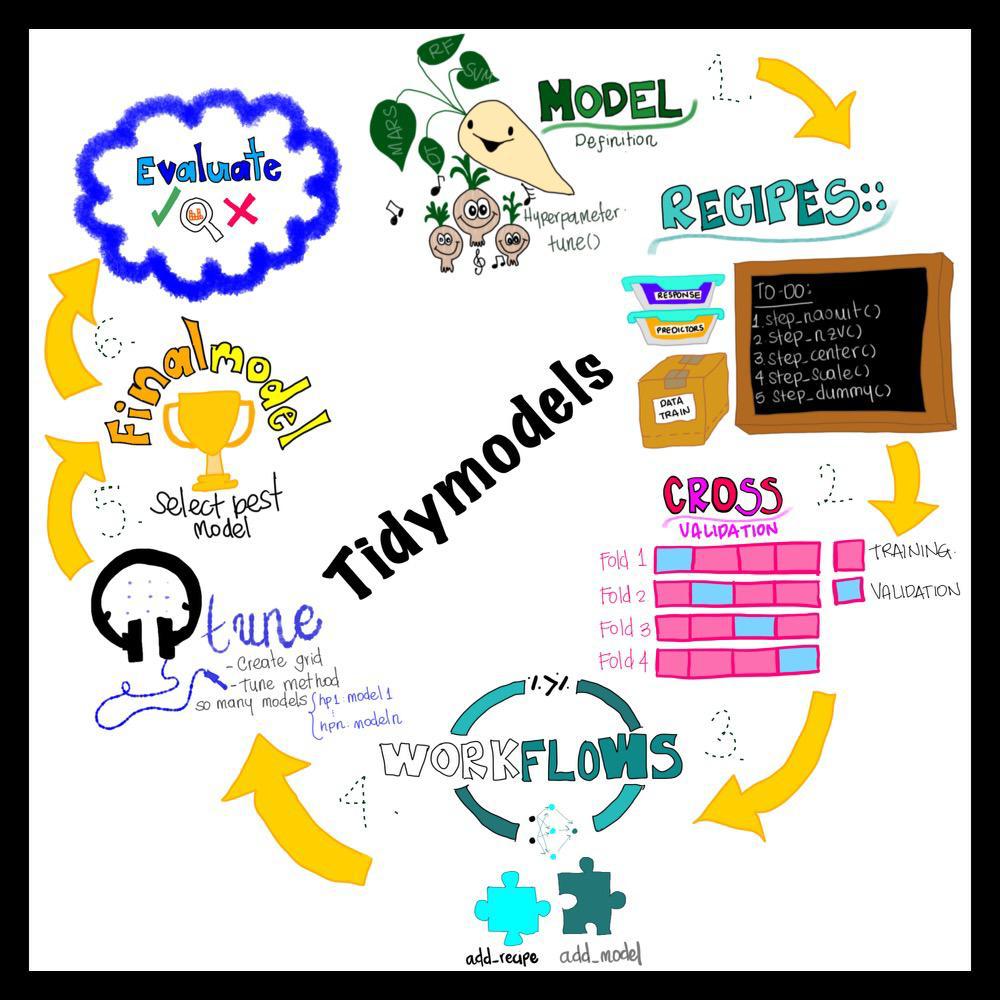 RF
SVM
MARS
DT
MODEL
Definition
Hyperpameter
tune()
1.
RECIPES::
RESPONSE
PREDICTORS
DATA
TRAIN
TO-DO:
1. step_naomit()
2 step_nzv()
3 step_center()
4 step_scale()
5 step_dummy()
2.
CROSS
VALIDATION
Fold 1
Fold 2
Fold 3
Fold 4
TRAINING.
VALIDATION
3.
%>%
WORKFLOWS
add_recipe
add_model
4.
tune
- Create grid
- Tune method
so many models
hp1: model 1
hpn: modeln
5.
Final model
select best
Model
6.
Evaluate
Tidymodels